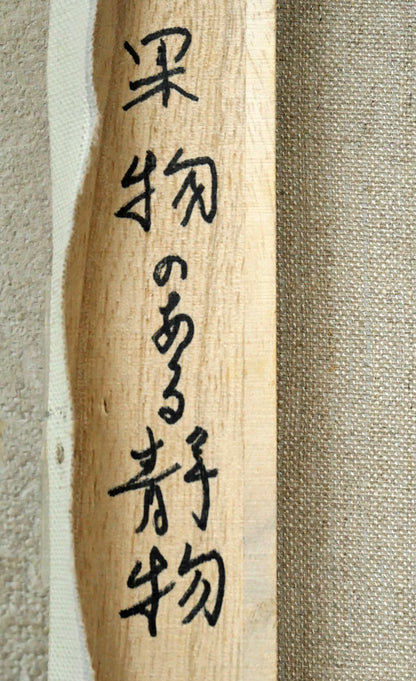 果物のある静物